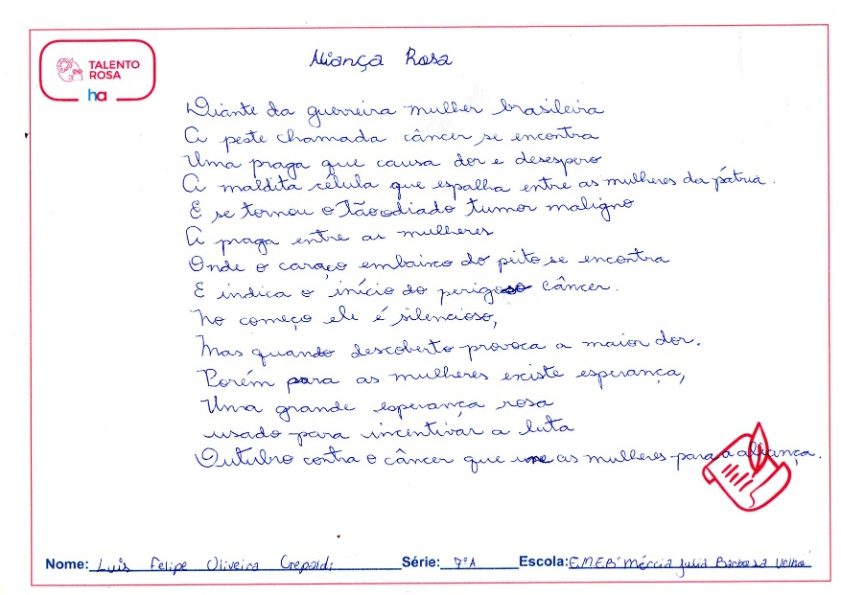 TALENTO
ROSA
ha
Aliança Rosa
Diante da guerreira mulher brasileira
A peste chamada câncer se encontra
Uma praga que causa dor e desespero
A maldita célula que espalha entre as mulheres da pátria.
E se tornou o tão odiado tumor maligno
A praga entre as mulheres
Onde o caroço embaixo do peito se encontra
E indica o início do perigoso câncer.
No começo ele é silencioso,
Mas quando descoberto provoca a maior dor.
Porém para as mulheres existe esperança,
Uma grande esperança rosa
usado para incentivar a luta
Outubro contra o câncer que une as mulheres para a aliança.
Nome: Luis Felipe Oliveira Crepaldi Série: 7ºA Escola: EMEB Mércia Julia Barbosa Velho